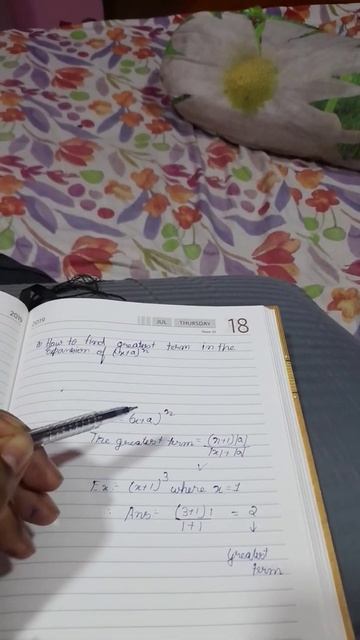 2019
2019
JUL THURSDAY 18
How to find greatest term in the
expansion of (x+a)^n
(x+a)^n
The greatest term = (n+1)|a|
|x|+|a|
Ex:- (x+1)^3 where x=1
∴ Ans- (3+1)1 = 2
1+1
↓
greatest
term